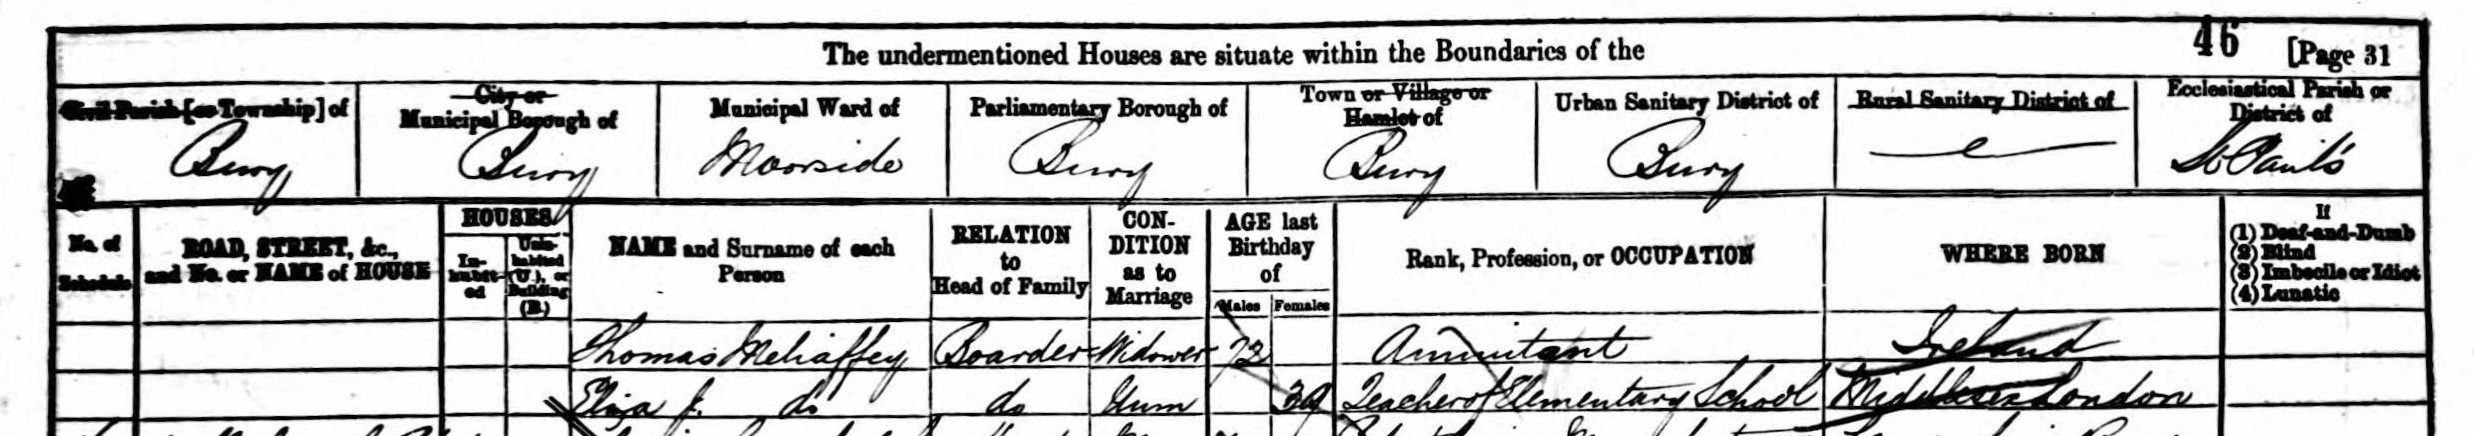 The undermentioned Houses are situate within the Boundaries of the
46 [Page 31
Civil Parish [or Township] of
Bury
City or Municipal Borough of
Bury
Municipal Ward of
Moorside
Parliamentary Borough of
Bury
Town or Village or Hamlet of
Bury
Urban Sanitary District of
Bury
Rural Sanitary District of
Ecclesiastical Parish or District of
St Paul's
No. of Schedule
ROAD, STREET, &c., and No. or NAME of HOUSE
HOUSES
In-habit-ed
Unin-habited (U.), or Building (B.)
NAME and Surname of each Person
RELATION to Head of Family
CON-DITION as to Marriage
AGE last Birthday of
Males Females
Rank, Profession, or OCCUPATION
WHERE BORN
If
(1) Deaf-and-Dumb
(2) Blind
(3) Imbecile or Idiot
(4) Lunatic
Thomas Mehaffey Boarder Widower 72 Annuitant Ireland
Eliza J. do do Unm 39 Teacher of Elementary School Middlesex London